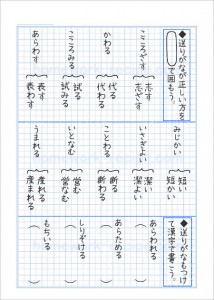 ◆送りがなが正しい方を
で囲もう。
こころざす
志す
志ざす
かわる
こころみる
試る
試みる
あらわす
表す
表わす
みじかい
短い
短かい
いさぎよい
潔い
潔よい
ことわる
断る
断わる
いとなむ
営む
営なむ
うまれる
産れる
産まれる
◆送りがなもつけ
て漢字で書こう。
あらわれる
(　　)
あらためる
(　　)
しりぞける
(　　)
もちいる
(　　)